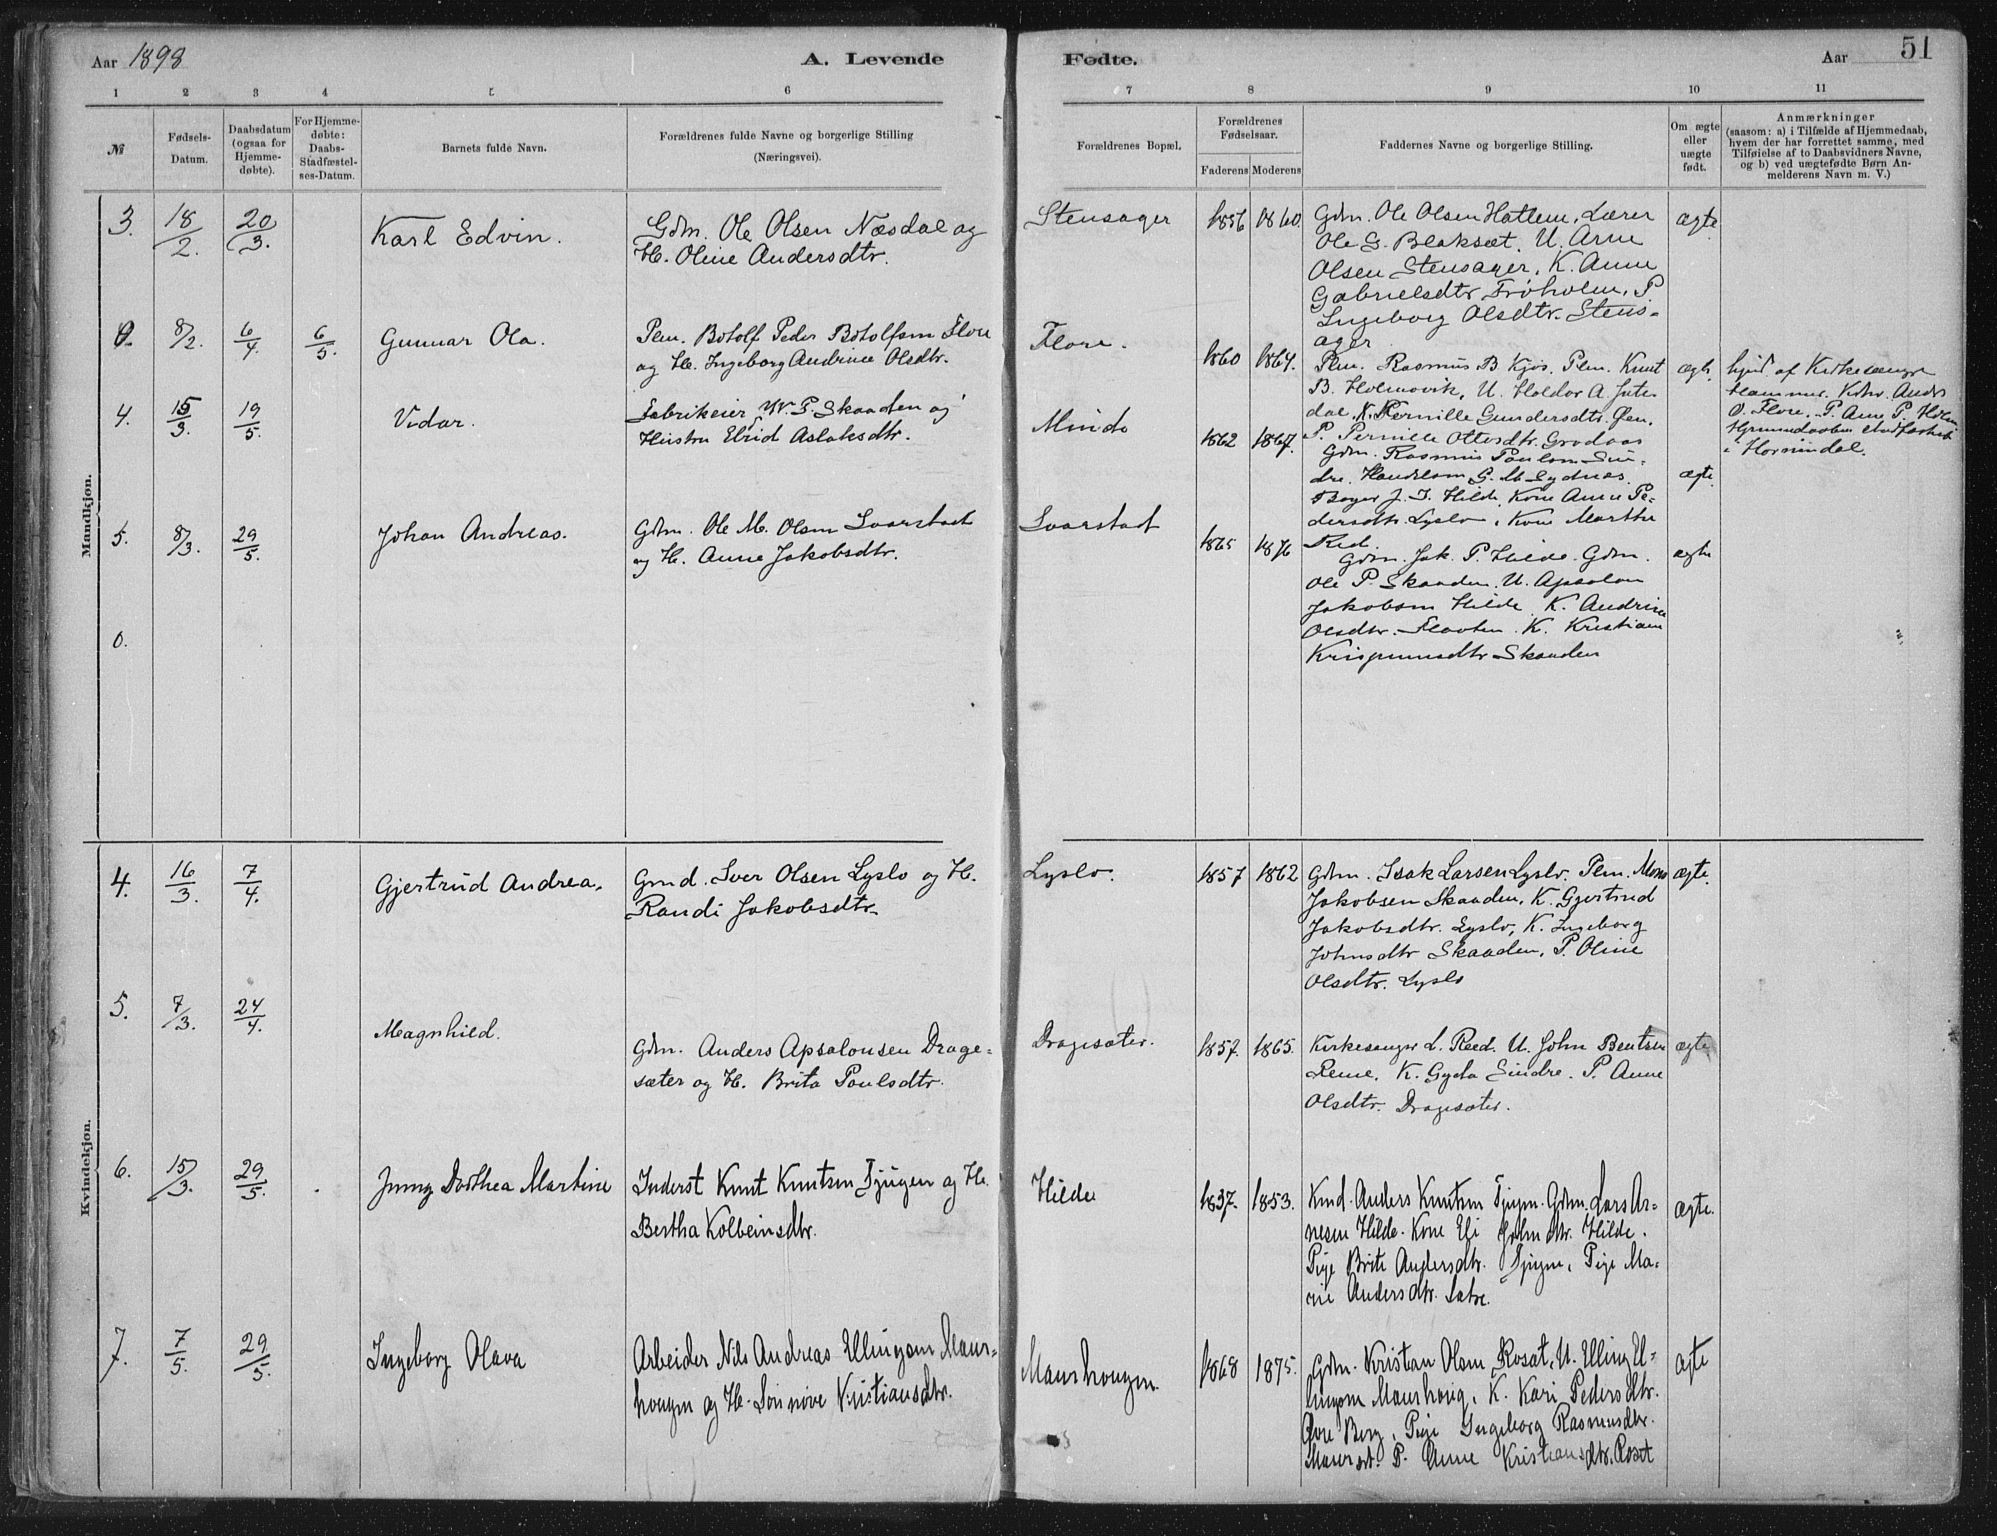 Aar 1898
A. Levende
Fødte.
Aar
51
1 2 3 4 5 6 7 8 9 10 11
№
Fødsels-
Datum.
Daabsdatum
(ogsaa for
Hjemme-
døbte).
For Hjemme-
døbte:
Daabs-
Stadfæstel-
ses-Datum.
Barnets fulde Navn.
Forældrenes fulde Navne og borgerlige Stilling
(Næringsvei).
Forældrenes Bopæl.
Forældrenes
Fødselsaar.
Faderens Moderens
Faddernes Navne og borgerlige Stilling.
Om ægte
eller
uægte
født.
Anmærkninger
(saasom: a) i Tilfælde af Hjemmedaab,
hvem der har forrettet samme, med
Tilføielse af to Daabsvidners Navne,
og b) ved uægtefødte Børn An-
melderens Navn m. V.)
Mandkjøn.
3. 18/2. 20/3. Karl Edvin.
Gdm. Ole Olsen Næsdal og
H. Oline Andersdtr.
Stensager 1856 1860.
Gdm. Ole Olsen Hattem, Lærer
Ole G. Blaksæt. U. Arne
Olsen Stensager, K. Anne
Gabrielsdtr. Frøholm, P
Ingeborg Olsdtr. Stens-
ager
ægte
0. 8/2. 6/4 6/5. Gunnar Ola.
Plm. Botolf Peder Botolfsen Flore
og H. Ingeborg Andrine Olsdtr.
Flore. 1860 1864.
Plm. Rasmus B. Kjøs. Plm. Knut
B. Holmøvik, U. Haldor A. Inte-
dal, K. Pernille Gundersdtr.
P. Pernille Ottersdtr. Grodaas
ægte.
hjd. af Kirkesanger
Hammer. Vidn. Anders
O. Flore. P. Anne P.
i Hornindal.
4. 15/3. 19/5. Vidar.
Fabrikeier W. P. Skaaden og
Hustru Elrid Aslaksdtr.
Minde 1862 1867.
Gdm. Rasmus Paulsen Sin-
dre. Handelsm. G. M. Sydnæs.
J. I. Hilde, Kone Anne Pe-
dersdtr. Lyslo, Kone Marthe
Red.
ægte.
5. 8/3. 29/5. Johan Andreas.
Gdm. Ole M. Olsen Svarstad
og H. Anne Jakobsdtr.
Svarstad 1865 1876
Gdm. Jak. P. Hilde. Gdm.
Ole P. Skaaden. U. Apsalon
Jakobsen Hilde. K. Andrine
Olsdtr. Flaaten. K. Kristiane
Krispinusdtr Skaaden
ægte
0.
Kvindekjøn.
4. 16/3. 7/4. Gjertrud Andrea.
Gmd. Iver Olsen Lyslo og H.
Randi Jakobsdtr.
Lyslo. 1857 1862
Gdm. Isak Larsen Lyslo. Plm. Mons
Jakobsen Skaaden, K. Gjertrud
Jakobsdtr. Lyslo, K. Ingeborg
Johnsdtr Skaaden, P. Oline
Olsdtr. Lyslo
ægte.
5. 7/3. 24/4. Magnhild.
Gdm. Anders Apsalonsen Drage-
sæter og H. Brita Paulsdtr.
Dragesæter. 1857. 1865.
Kirkesanger L. Reed. U. John Bentsen
Leme. K. Gyda Sindre. P. Anne
Olsdtr. Dragesæter.
ægte
6. 15/3. 29/5. Jenny Dorthea Martine
Inderst Knut Knutsen Tjugen og H.
Bertha Kolbeinsdtr.
Hilde 1837. 1853.
Kmd. Anders Knutsen Tjugen. Gdm. Lars Ar-
nesen Hilde. Kone Eli Johnsdtr. Hilde.
Pige Brite Andersdtr. Tjugen, Pige Ma-
rie Andersdtr. Sætre.
ægte.
7. 7/5. 29/5. Ingeborg Olava
Arbeider Nils Andreas Ellingsen Maur-
hougen og H. Sønnøve Kristiansdtr.
Maurhougen 1868 1875.
Gdm. Kristian Olsen Roset, U. Elling El-
lingsen Maurhoug, K. Kari Pedersdtr.
Øvre Berg, Pige Ingeborg Rasmusdtr.
Maurset. P. Anne Kristiansdtr. Roset
ægte